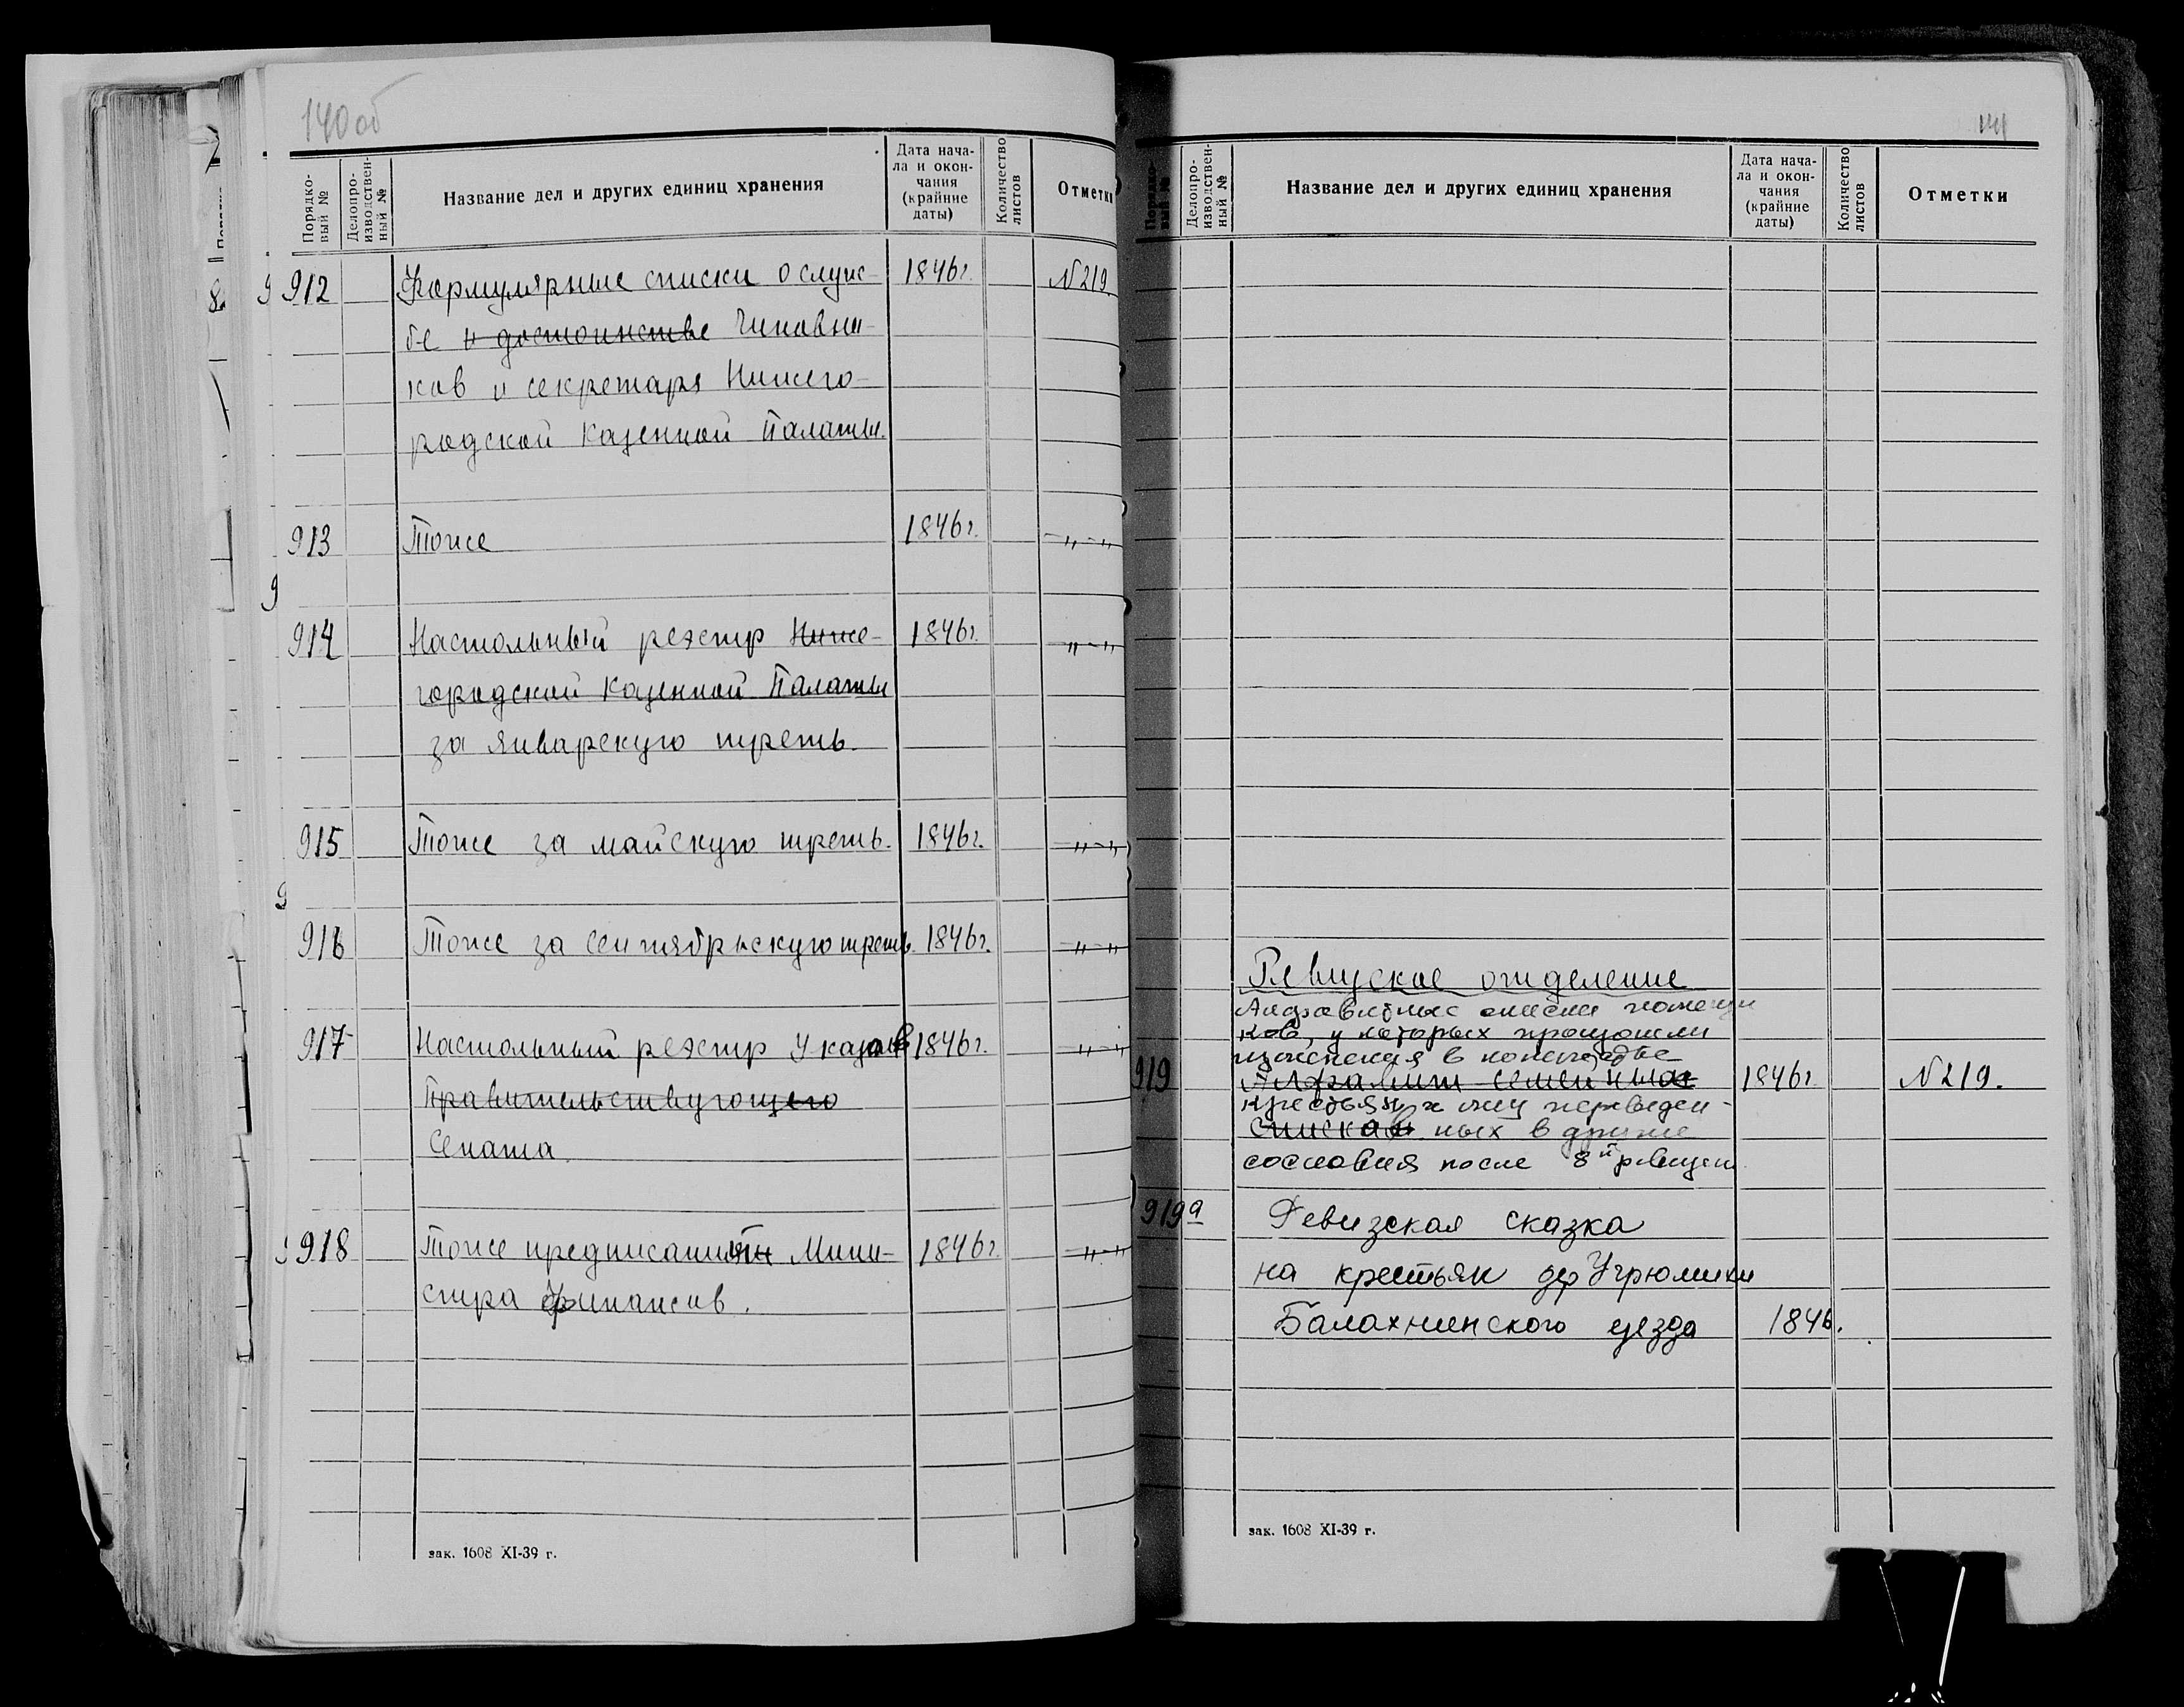 140об
Порядко-
вый №
Делопро-
изводствен-
ный №
Название дел и других единиц хранения
Дата нача-
ла и окон-
чания
(крайние
даты)
Количество
листов
Отметки
912 Формулярные списки о служ- 1846г. N219
бе и достоинстве чиновни-
ков и секретаря Нижего-
родской Казенной Палаты.
913 Тоже 1846г. -„-„
914 Настольный реэстр Ниже- 1846г. -„-„
городской Казенной Палаты
за январскую треть.
915 Тоже за майскую треть. 1846г. -„-„
916 Тоже за сентябрьскую треть. 1846г. -„-„
917 Настольный реэстр указов 1846г. -„-„
Правительствующего
Сената
918 Тоже предписаний Мини- 1846г. -„-„
стра финансов.
зак. 1608 XI-39 г.
141
Порядко-
вый №
Делопро-
изводствен-
ный №
Название дел и других единиц хранения
Дата нача-
ла и окон-
чания
(крайние
даты)
Количество
листов
Отметки
Ревизское отделение
Алфавитные списки помещи
ков, у которых произошли
изменения в
919 Алфавит семейных 1846г. N219.
крестьян и лиц переведен-
списков ных в другие
сословия после 8й ревизии
919а Ревизская сказка
на крестьян дер Угрюмихи
Балахнинского уезда 1846.
зак. 1608 XI-39 г.